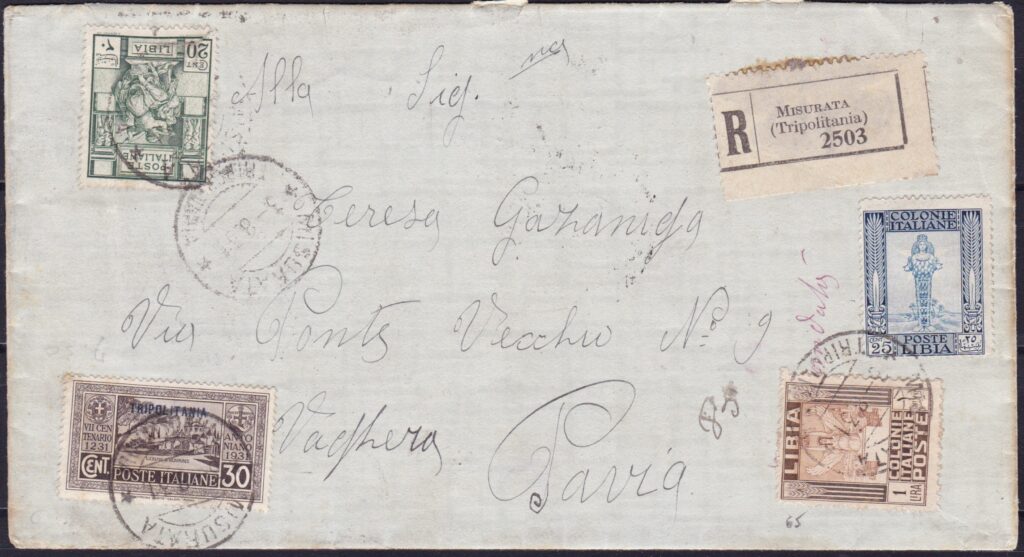 20 CENT ٢٠
LIBIA
POSTE ITALIANE
Alla Sig.
R
MISURATA
(Tripolitania)
2503
MISURATA
Teresa Gazaniga
COLONIE
ITALIANE
CENT 25 POSTE LIBIA ٢٥
Via Ponte Vecchio N.º 9
TRIPOLITANIA
VII CENTENARIO
1231
ANTONIANO
1931
CENT. POSTE ITALIANE 30
MISURATA
Voghera
Pavia
LIBIA
COLONIE
ITALIANE
POSTE
1 LIRA
65